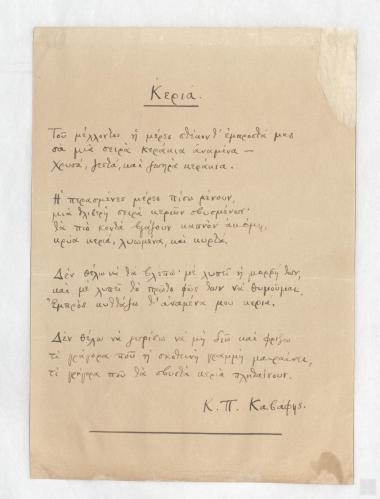 Κεριά.
Τοῦ μέλλοντος ἡ μέρες στέκοντ' ἐμπροστά μας
σὰ μιὰ σειρὰ κεράκια ἀναμένα —
χρυσά, ζεστά, καὶ ζωηρὰ κεράκια.
Ἡ περασμένες μέρες πίσω μένουν,
μιὰ θλιβερὴ σειρὰ κεριῶν σβυσμένων·
τὰ πιὸ κοντὰ βγάζουν καπνὸν ἀκόμη,
κρύα κεριά, λυωμένα, καὶ κυρτά.
Δὲν θέλω νὰ τὰ βλέπω· μὲ λυπεῖ ἡ μορφή των,
καὶ μὲ λυπεῖ τὸ πρῶτο φῶς των νὰ θυμοῦμαι.
Ἐμπρὸς κυττάζω τ' ἀναμένα μου κεριά.
Δὲν θέλω νὰ γυρίσω νὰ μὴ διῶ καὶ φρίξω
τί γρήγορα ποῦ ἡ σκοτεινὴ γραμμὴ μακραίνει,
τί γρήγορα ποῦ τὰ σβυστὰ κεριὰ πληθαίνουν.
Κ. Π. Καβάφης.